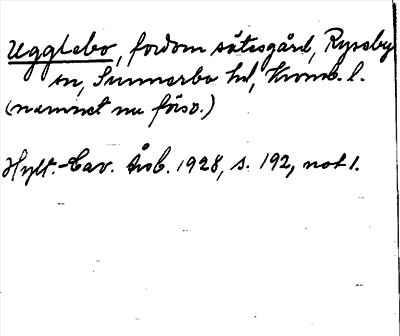 Ugglebo, fordom sätesgård, Ryssby
sn, Sunnerbo hd, Kronob. l.
(namnet nu försv.)
Hylt.-Cav. Årsb. 1928, s. 192, not 1.